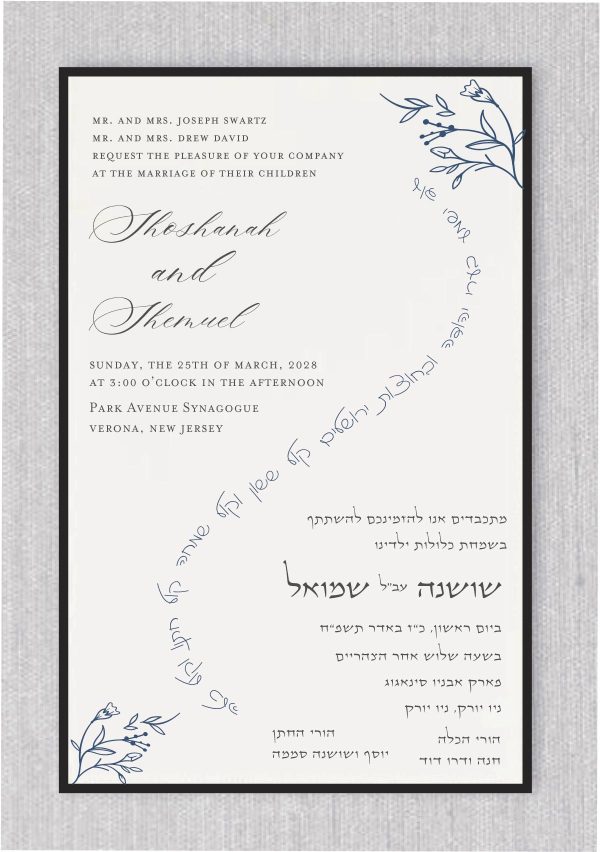 MR. AND MRS. JOSEPH SWARTZ
MR. AND MRS. DREW DAVID
REQUEST THE PLEASURE OF YOUR COMPANY
AT THE MARRIAGE OF THEIR CHILDREN
Shoshanah
and
Shemuel
SUNDAY, THE 25TH OF MARCH, 2028
AT 3:00 O'CLOCK IN THE AFTERNOON
PARK AVENUE SYNAGOGUE
VERONA, NEW JERSEY
עוד ישמע בערי יהודה ובחוצות ירושלים קול ששון וקול שמחה קול חתן וקול כלה
מתכבדים אנו להזמינכם להשתתף
בשמחת כלולות ילדינו
שושנה עב״ל שמואל
ביום ראשון, כ״ז באדר תשפ״ח
בשעה שלוש אחר הצהריים
פארק אבניו סינאגוג
ניו יורק, ניו יורק
הורי הכלה
חנה ודרו דוד
הורי החתן
יוסף ושושנה סממה